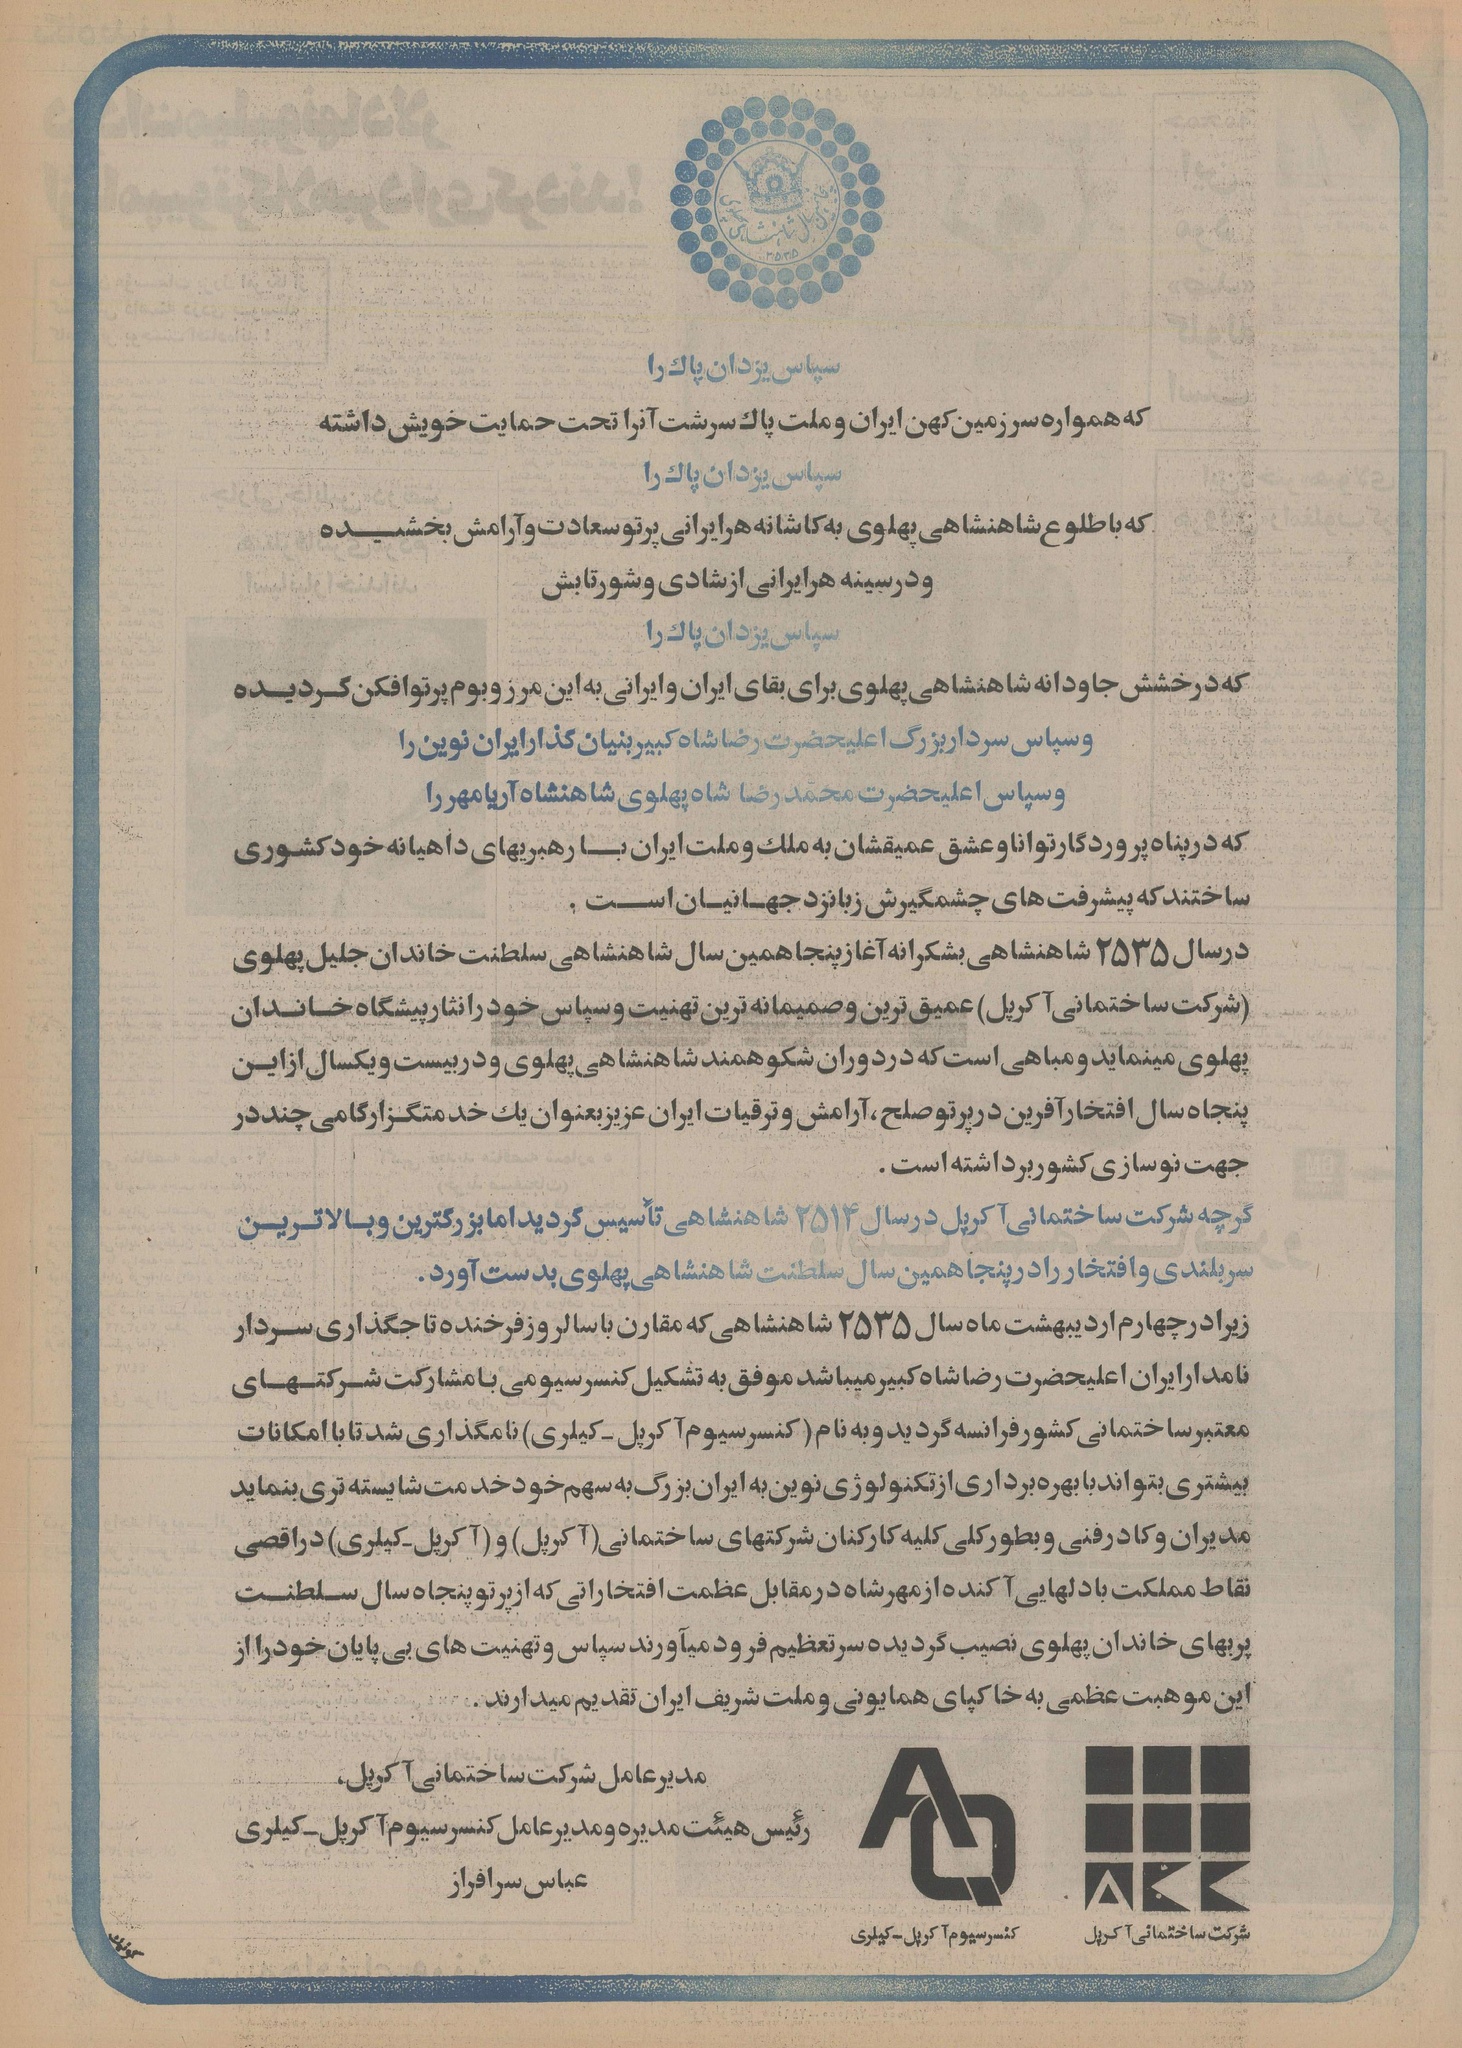 ۲۵۳۵
سپاس یزدان پاک را
که همواره سرزمین کهن ایران و ملت پاک سرشت آنرا تحت حمایت خویش داشته
سپاس یزدان پاک را
که با طلوع شاهنشاهی پهلوی به کاشانه هر ایرانی پرتو سعادت و آرامش بخشیده
و در سینه هر ایرانی از شادی و شور تابش
سپاس یزدان پاک را
که درخشش جاودانه شاهنشاهی پهلوی برای بقای ایران و ایرانی به این مرز و بوم پرتو افکن گردیده
و سپاس سردار بزرگ اعلیحضرت رضا شاه کبیر بنیان گذار ایران نوین را
و سپاس اعلیحضرت محمد رضا شاه پهلوی شاهنشاه آریامهر را
که در پناه پروردگار توانا و عشق عمیقشان به ملک و ملت ایران با رهبریهای داهیانه خود کشوری
ساختند که پیشرفت های چشمگیرش زبانزد جهانیان است .
در سال ۲۵۳۵ شاهنشاهی بشکرانه آغاز پنجاهمین سال شاهنشاهی سلطنت خاندان جلیل پهلوی
(شرکت ساختمانی آ کرپل) عمیق ترین و صمیمانه ترین تهنیت و سپاس خود را نثار پیشگاه خاندان
پهلوی مینماید و مباهی است که در دوران شکوهمند شاهنشاهی پهلوی و در بیست و یکسال از این
پنجاه سال افتخار آفرین در پرتو صلح ، آرامش و ترقیات ایران عزیز بعنوان یک خدمتگزار گامی چند در
جهت نوسازی کشور برداشته است .
گرچه شرکت ساختمانی آ کرپل در سال ۲۵۱۴ شاهنشاهی تأسیس گردید اما بزرگترین و بالاترین
سربلندی و افتخار را در پنجاهمین سال سلطنت شاهنشاهی پهلوی بدست آورد .
زیرا در چهارم اردیبهشت ماه سال ۲۵۳۵ شاهنشاهی که مقارن با سالروز فرخنده تاجگذاری سردار
نامدار ایران اعلیحضرت رضا شاه کبیر میباشد موفق به تشکیل کنسرسیومی با مشارکت شرکتهای
معتبر ساختمانی کشور فرانسه گردید و به نام ( کنسرسیوم آ کرپل - کیلری) نامگذاری شد تا با امکانات
بیشتری بتواند با بهره برداری از تکنولوژی نوین به ایران بزرگ به سهم خود خدمت شایسته تری بنماید
مدیران و کادر فنی و بطور کلی کلیه کارکنان شرکتهای ساختمانی (آ کرپل) و (آ کرپل - کیلری) در اقصی
نقاط مملکت با دلهایی آ کنده از مهر شاه در مقابل عظمت افتخاراتی که از پرتو پنجاه سال سلطنت
پربهای خاندان پهلوی نصیب گردیده سر تعظیم فرود میآورند سپاس و تهنیت های بی پایان خود را از
این موهبت عظمی به خاکپای همایونی و ملت شریف ایران تقدیم میدارند .
مدیر عامل شرکت ساختمانی آ کرپل،
رئیس هیئت مدیره و مدیر عامل کنسرسیوم آ کرپل - کیلری
عباس سرافراز
شرکت ساختمانی آ کرپل
کنسرسیوم آ کرپل - کیلری